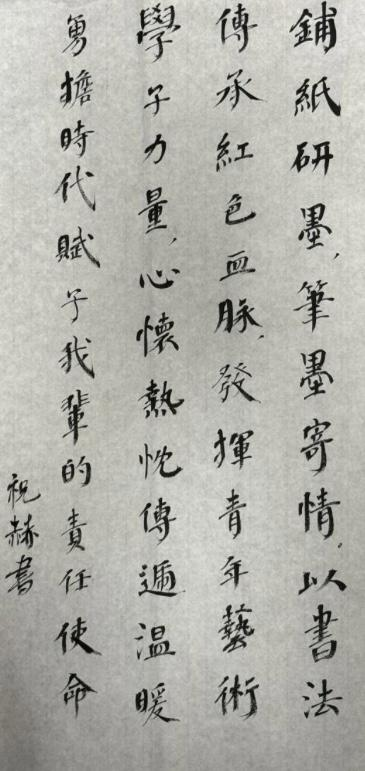 鋪紙研墨，筆墨寄情。以書法
傳承紅色血脉，發揮青年藝術
學子力量，心懷熱忱傳遞温暖
勇擔時代賦予我輩的責任使命
祝赫書